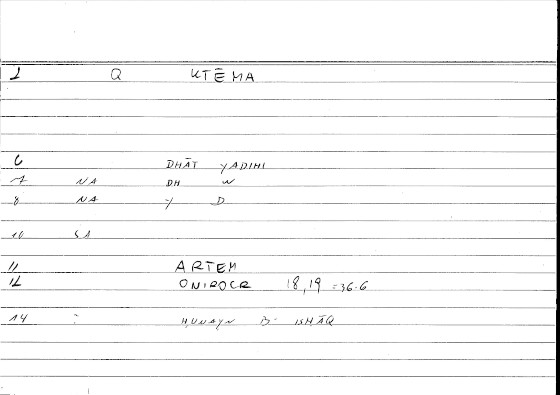 1 Q KTĒMA
6 DHĀT YADIHI
7 NA DH W
8 NA Y D
10 SA
11 ARTEM
12 ONIROCR 18,19 =36.6
14 : ḤUNAYN B- ISḤĀQ